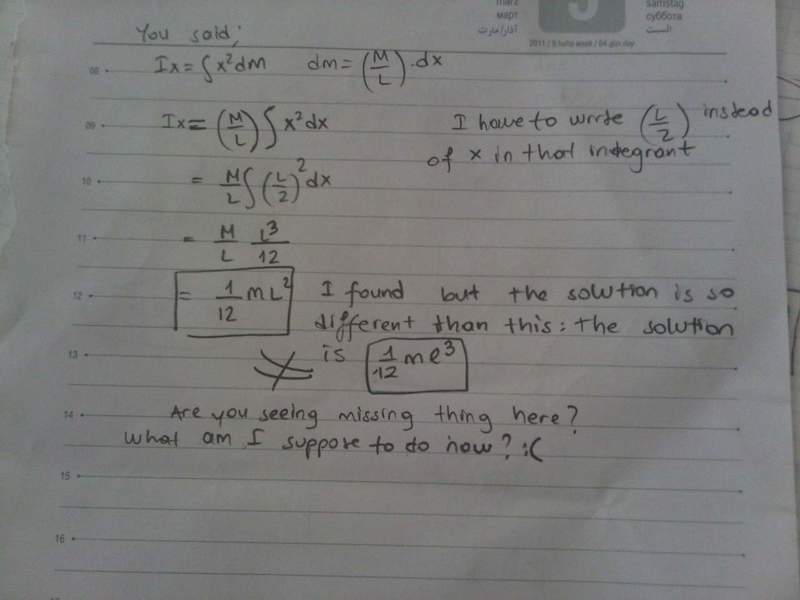 март
آذار/مارت
samstag
суббота
السبت
5
You said;
Ix = ∫x²dm dm = (M/L) . dx
08
09
Ix = (M/L) ∫ x²dx
I have to write (L/2) instead
of x in that indegrant
10
= M/L ∫ (L/2)² dx
11
= M/L L³/12
12
= 1/12 mL²
I found but the solution is so
different than this: the solution
13
is 1/12 ml³
14
Are you seeing missing thing here?
What am I suppose to do now? :(
15
16